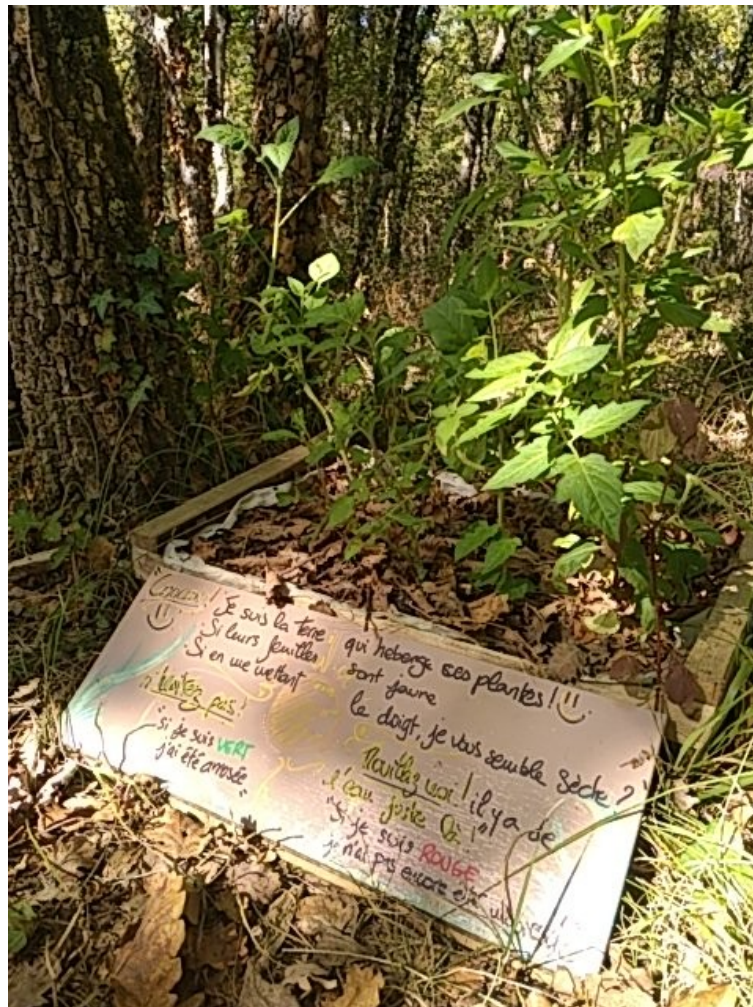 "Coucou! Je suis la terre qui héberge ces plantes!
Si leurs feuilles sont jaune
Si en me mettant le doigt, je vous semble sèche?
n'hésitez pas! Mouillez moi! il y a de
l'eau juste là!"
"Si je suis VERT
j'ai été arrosée"
"Si je suis ROUGE
je n'ai pas encore été